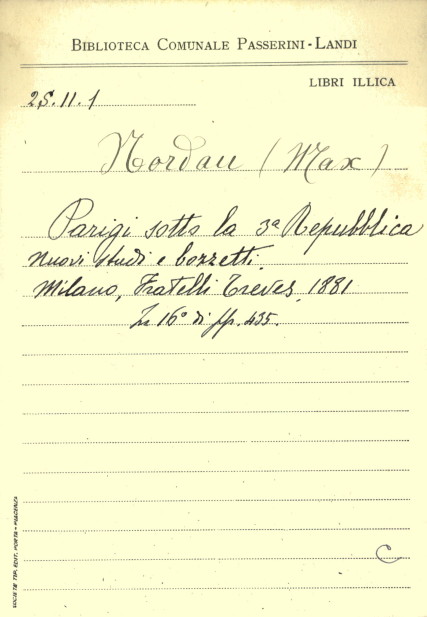 BIBLIOTECA COMUNALE PASSERINI-LANDI
LIBRI ILLICA
2S.11.1
Nordau (Max)
Parigi sotto la 3ª Repubblica
Nuovi studi e bozzetti.
Milano, Fratelli Treves, 1881
In 16° di pp. 435.
C
SOCIETÀ TIP. EDIT. PORTA - PIACENZA